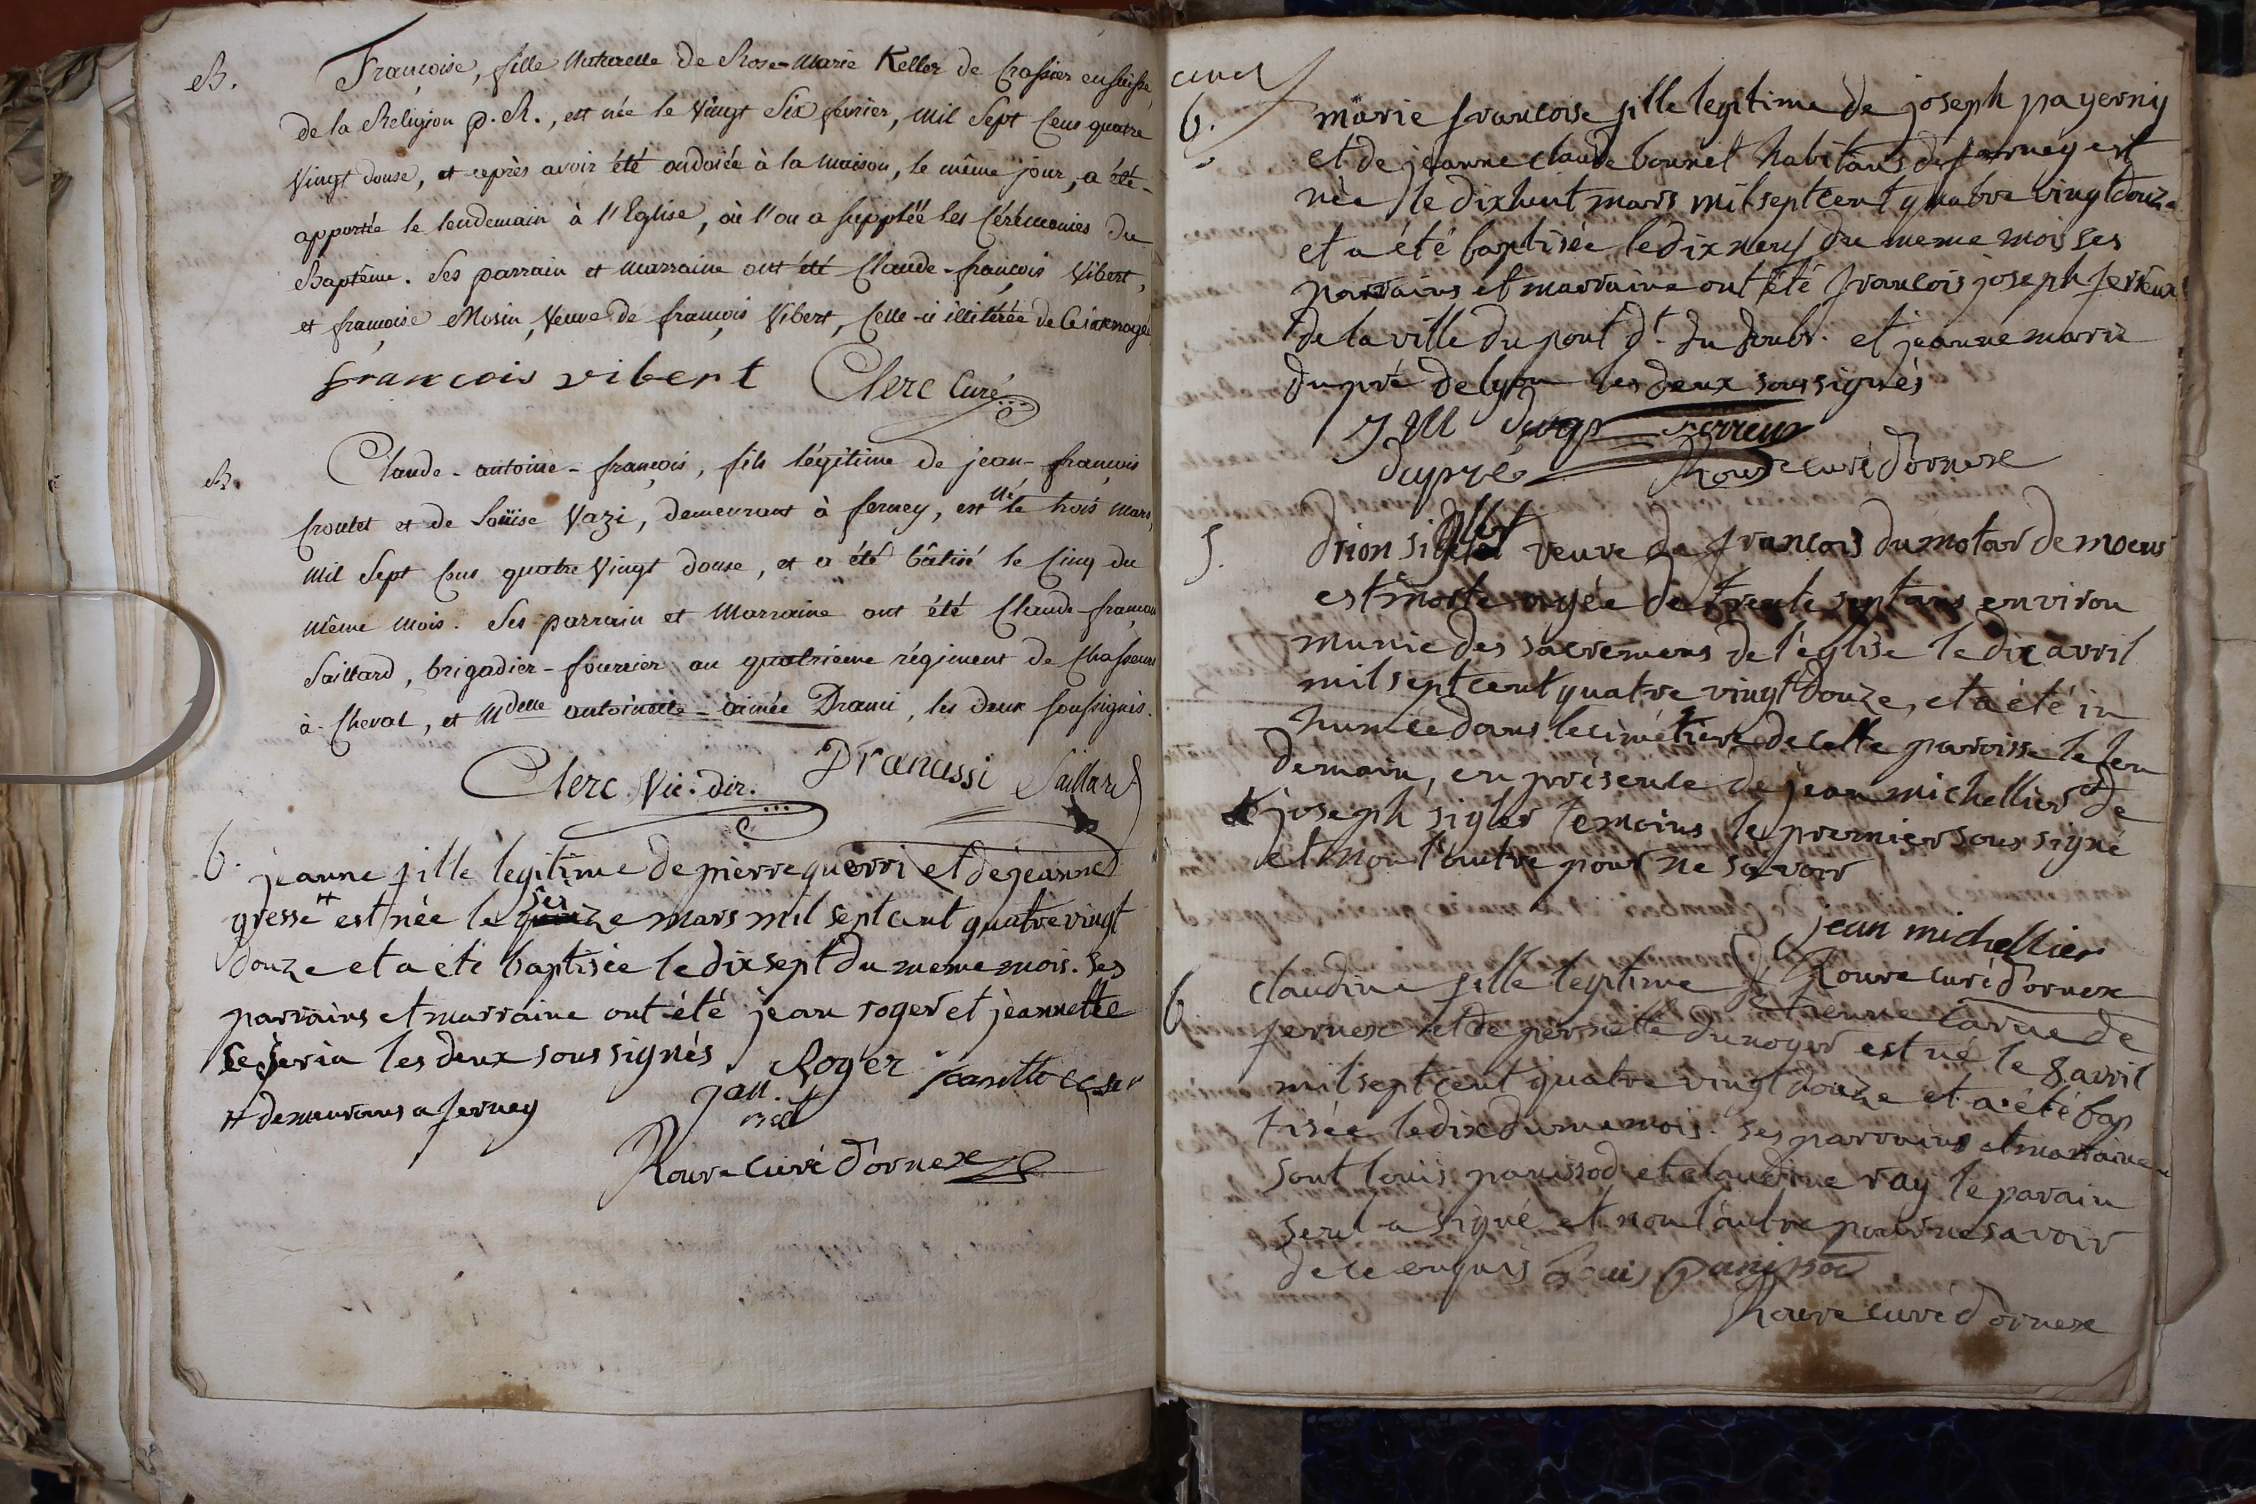 B.
Françoise, fille Naturelle de Rose-Marie Keller de Crassier en Suisse,
de la Religion p. R., est née le Vingt Six février, Mil Sept Cens quatre
Vingt douse, et après avoir été ondoiée à la Maison, le même jour, a été
apportée le lendemain à l'Eglise, où l'on a suppléé les Cérémonies du
Baptême. Ses parrain et Marraine ont été Claude-françois Vibert,
et françoise Mosin, Veuve de françois Vibert, Celle-ci illitérée de
françois vibert Clerc Curé
B.
Claude-antoine-françois, fils légitime de jean-françois
Croutet et de Loüise Vazi, demeurant à ferney, est né le trois Mars,
Mil Sept Cens quatre Vingt douse, et a été bâtisé le Cinq du
même Mois. Ses parrain et Marraine ont été Claude-françois
Saillard, brigadier-fourrier au quatrieme régiment de Chasseurs
à Cheval, et Mdelle antoinette-aimée Dranci, les deux soussignés.
Clerc Vic. dir. Dranussi Saillard
b.
jeanne fille legitime de pierre querri et de jeanne
gresse # est née le seize mars mil sept cent quatre vingt
douze et a été baptisée le dix sept du meme mois. ses
parrains et marraine ont été jean roger et jeannette
les deux sous signés
jan. Roger
# demeurans a ferney
Rouve curé d'ornex
b.
marie francoise fille legitime de joseph payerny
et de jeanne claude bonnet habitans de farney est
née le dix huit mars mil sept cent quatre vingt douze
et a été baptisée le dix neuf du meme mois ses
parrains et marraine ont été francois joseph ferreux
de la ville du pont dt. du doubs. et jeanne marie
dupré de lyon les deux sous signés
J M ferreux
dupré Rouve curé d'ornex
S.
veuve de francois dumotar de moens
est morte agée de trente sept ans environ
munie des sacremens de l'église le dix avril
mil sept cent quatre vingt douze, et a été in
humée dans le cimétiere de cette paroisse le len
demain, en présence de jean michellier et de
joseph sigler temoins le premier sous signé
et non l'autre pour ne savoir
jean michellier
Rouve curé d'ornex
b
claudine fille legitime d'etienne larue de
fernex et de pernette dunoyer est né le 8 avril
mil sept cent quatre vingt douze et a été bap
tisée le dix du meme mois. ses parrains et marraine
sont louis panissod et claudine ray le parain
seul a signé et non l'autre pour ne savoir
de ce enquis Louis Panissod
Rouve curé d'ornex